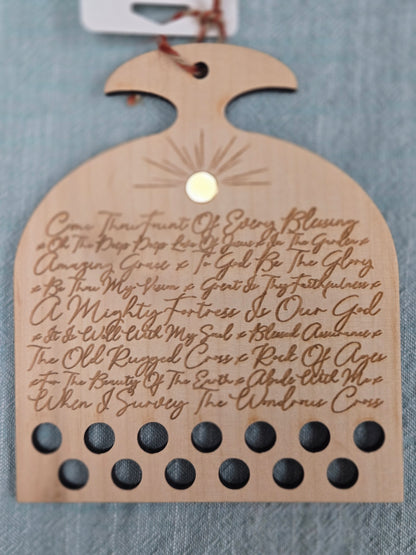 Come Thou Fount Of Every Blessing
x Oh The Deep Deep Love Of Jesus x In The Garden x
Amazing Grace x To God Be The Glory
x Be Thou My Vision x Great Is Thy Faithfulness x
A Mighty Fortress Is Our God
x It Is Well With My Soul x Blessed Assurance x
The Old Rugged Cross x Rock Of Ages
x For The Beauty Of The Earth x Abide With Me x
When I Survey The Wondrous Cross